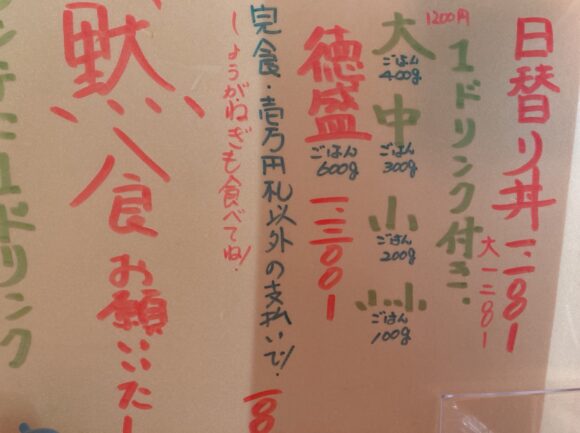 日替り丼 一.二〇〇ー
大一二〇〇ー
1200円
1ドリンク付き.
大 ごはん400g
中 ごはん300g
小 ごはん200g
ごはん100g
徳盛 ごはん600g 一.三〇〇ー
完食・壱万円札以外の支払いで!
しょうがねぎも食べてね!
黙食お願いいたし
に1ドリンク